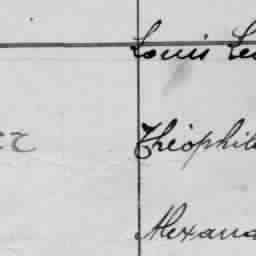 Louis Le
Théophil
Alexand